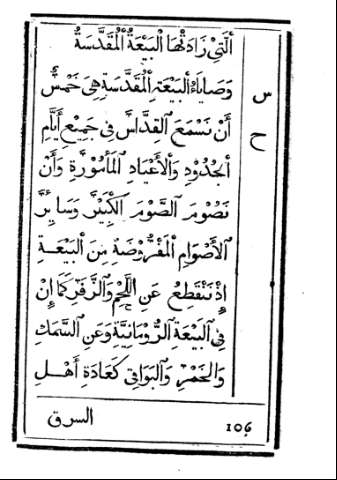 ٱلَّتِي زَادَتْهَا ٱلْبَيْعَةُ ٱلْمُقَدَّسَةُ
س وَصَايَاءُ ٱلْبَيْعَةِ ٱلْمُقَدَّسَةِ هِيَ خَمْسٌ
ح أَنْ نَسْمَعَ ٱلْقِدَّاسَ فِي جَمِيْعِ أَيَّامِ
ٱلْحُدُوْدِ وَٱلْأَعْيَادِ ٱلْمَأْمُوْرَةِ وَأَنْ
نَصُوْمَ ٱلصَّوْمَ ٱلْكَبِيْرَ وَسَائِرَ
ٱلْأَصْوَامِ ٱلْمَفْرُوْضَةِ مِنَ ٱلْبَيْعَةِ
إِذْ نَنْقَطِعُ عَنِ ٱللَّحْمِ وَٱلزَّفَرِ كَمَا إِنْ
فِي ٱلْبَيْعَةِ ٱلرُّوْمَانِيَّةِ وَعَنِ ٱلسَّمَكِ
وَٱلْخَمْرِ وَٱلْبَوَاقِي كَعَادَةِ أَهْلِ
السرق
106